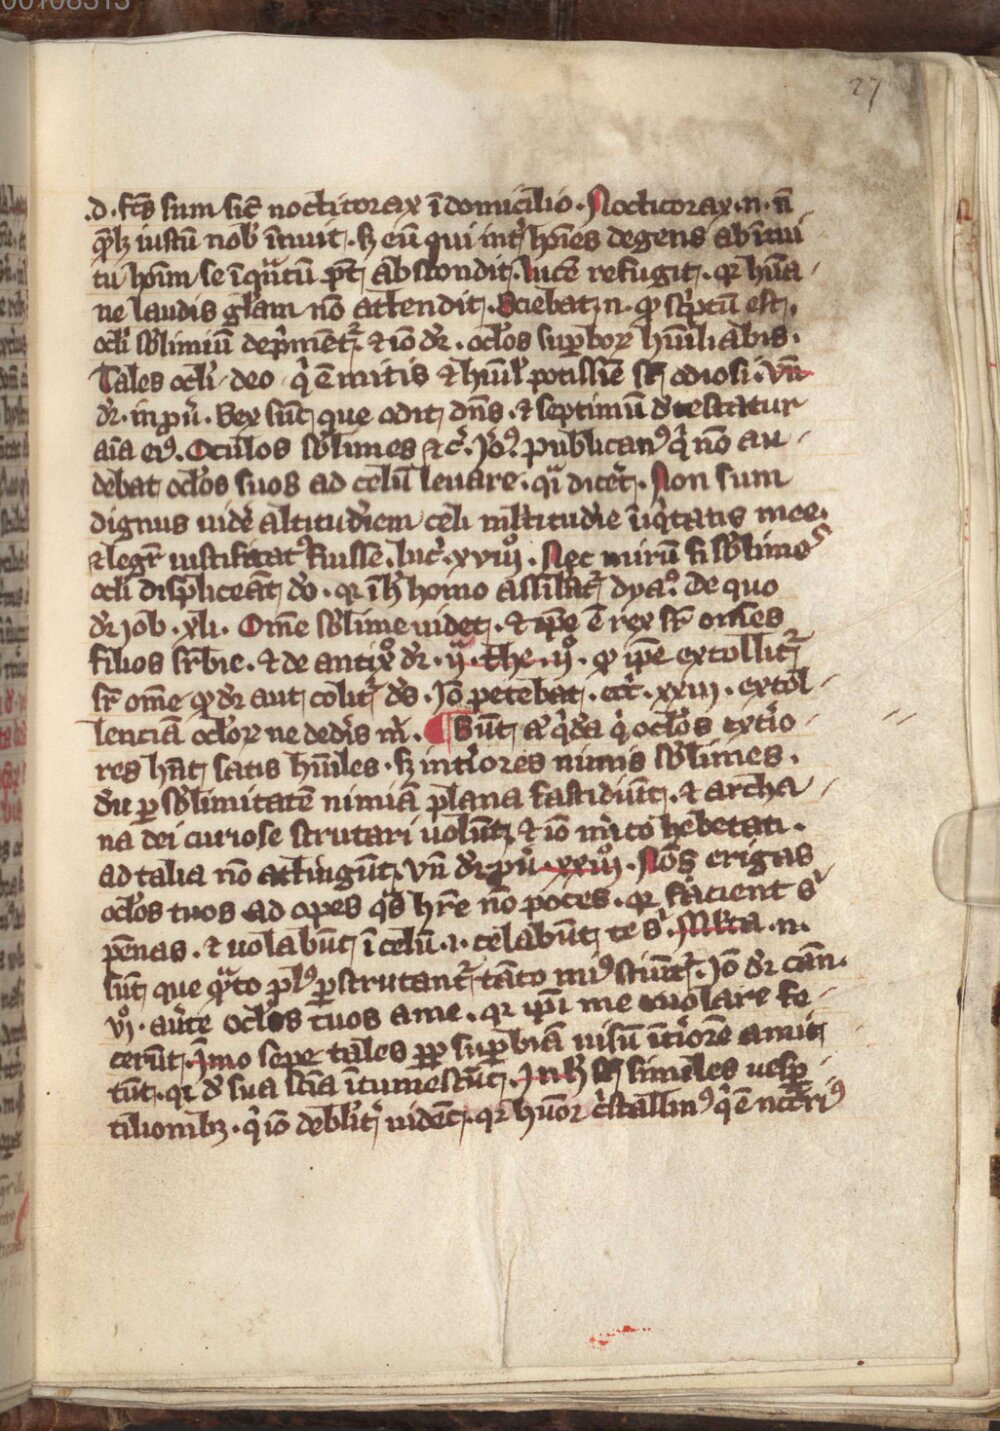 00108313
27
.d. fcs sum sic̄ nocticorax ī domicilio. Nocticorax .n. n̄
iustū nob̾ īnuit. sꝫ eū qui int̾ hoīes degens ab ītui
tu hoīm se īqͣtū pōt abscondit. lucē refugit. qꝛ hūa
ne laudis gl̄am nō attendit. Sciebat .n. ꝙ sc̾ptū est.
ocl̾i sb̾limiū dep̾mēt̾. ⁊ iō dr̄. ocl̾os suꝑboꝝ hūiliabis.
Tales ocl̾i deo qͥ ē mitis ⁊ hūil̾ potissīe st̄ odiosi. Vn̄
dr̄. in pu̾. Sex sūt que odit dn̄s. ⁊ septimū detestatur
aīa eiꝰ. Oculos sb̾limes ⁊c̾. Iō publicanꝰ qͥ nō au
debat ocl̾os suos ad celū leuare. qͣ dicet̾. Non sum
dignus uide̾ altitudīem celi ml̾titudīe īiqͥtatis mee.
⁊ legr̄ iustificatꝰ fuisse. luc̾. xviii°. Nec mirū si sb̾limes
ocl̾i displiceāt do̾. qꝛ ī h̾ homo assilat̾ dya°. de quo
dr̄ iob. xli. Om̄e sb̾lime uidet. ⁊ ip̄e ē rex sr̄ om̄es
filios sr̄bie. ⁊ de antixp̄o dr̄. ij. the. ij°. ꝙ ip̄e extollit̾
sr̄ om̄e ꝙ dr̄ aut colit̾ ds̄. Iō petebat. ecc̾. xxiii. extol
lenciā ocl̾oꝝ ne dedis̾ m̾. ¶ Sūt aͥ qͥdā qͥ ocl̾os ext̾io
res hn̄t satis hūiles. sꝫ int̾iores nimis sb̾limes.
dū ꝑ sb̾limitatē nimiā plana fastidiūt. ⁊ archa
na dei curiose scrutari uolūt. ⁊ iō mito hebetati.
ad talia nō attingūt. Vn̄ dr̄ pu̾. xxiii°. Nō erigas
ocl̾os tuos ad opes qͣs hr̄e nō potes. qꝛ facient s̾
pēnas. ⁊ uolabūt ī celū .i. celabūt te s̾. Ml̾ta .n.
sūt que qͣto plꝰ ꝑscrutant̾ tāto minꝰ sciūt̾. Iō dr̄ can̄.
vi°. au̾te ocl̾os tuos a me. qꝛ ip̄i me euolare fe
cerūt. Īmo sepe tales ꝓpter suꝑbiā uisū īt̾iorē amit
tūt. qꝛ de̾ sua sciā ītumescūt. In h̾ st̄ similes uesꝑ
tilionibꝫ. qͥ iō debilit̾ uidēt. qꝛ hūor c̾stallinꝰ qͥ ē